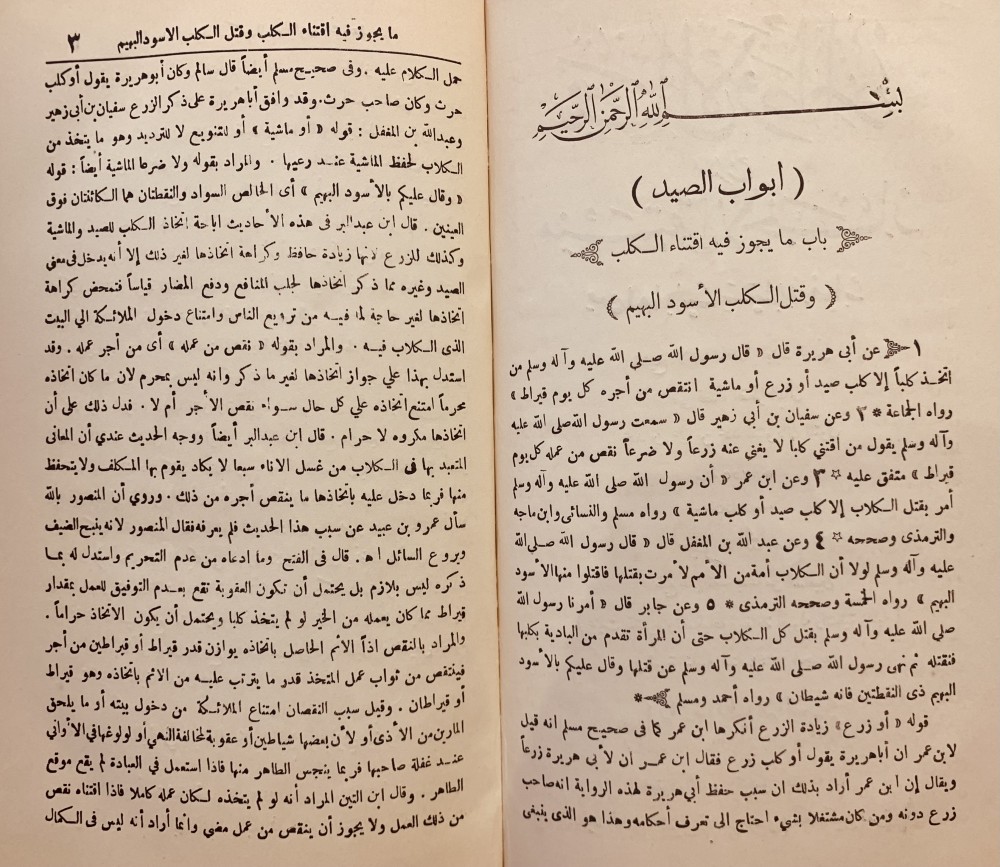 بسم الله الرحمن الرحيم
( أبواب الصيد )
باب ما يجوز فيه اقتناء الكلب
( وقتل الكلب الأسود البهيم )
١ عن أبي هريرة قال « قال رسول الله صلى الله عليه وآله وسلم من
اتخذ كلباً إلا كلب صيد أو زرع أو ماشية انتقص من أجره كل يوم قيراط »
رواه الجماعة * ٢ وعن سفيان بن أبي زهير قال « سمعت رسول الله صلى الله عليه
وآله وسلم يقول من اقتني كلبا لا يغني عنه زرعاً ولا ضرعاً نقص من عمله كل يوم
قيراط » متفق عليه * ٣ وعن ابن عمر « أن رسول الله صلى الله عليه وآله وسلم
أمر بقتل الكلاب إلا كلب صيد أو كلب ماشية » رواه مسلم والنسائي وابن ماجه
والترمذى وصححه * ٤ وعن عبد الله بن المغفل قال « قال رسول الله صلى الله
عليه وآله وسلم لولا أن الكلاب أمة من الأمم لأمرت بقتلها فاقتلوا منها الأسود
البهيم » رواه الخمسة وصححه الترمذى * ٥ وعن جابر قال « أمرنا رسول الله
صلى الله عليه وآله وسلم بقتل كل الكلاب حتى أن المرأة تقدم من البادية بكلبها
فنقتله ثم نهى رسول الله صلى الله عليه وآله وسلم عن قتلها وقال عليكم بالأسود
البهيم ذى النقطتين فانه شيطان » رواه أحمد ومسلم *
قوله « أو زرع » زيادة الزرع أنكرها ابن عمر كما فى صحيح مسلم انه قيل
لابن عمر ان أباهريرة يقول أو كلب زرع فقال ابن عمر ان لأبى هريرة زرعاً
ويقال إن ابن عمر أراد بذلك ان سبب حفظ أبي هريرة لهذه الرواية انه صاحب
زرع دونه ومن كان مشتغلا بشيء احتاج الى تعرف أحكامه وهذا هو الذى ينبغى
ما يجوز فيه اقتناء الكلب وقتل الكلب الاسود البهيم ٣
حمل الكلام عليه . وفى صحيح مسلم أيضاً قال سالم وكان أبو هريرة يقول أو كلب
حرث وكان صاحب حرث . وقد وافق أباهريرة على ذكر الزرع سفيان بن أبى زهير
وعبد الله بن المغفل : قوله « أو ماشية » أو للتنويع لا للترديد وهو ما يتخذ من
الكلاب لحفظ الماشية عند رعيها . والمراد بقوله ولا ضرعا الماشية أيضاً : قوله
« وقال عليكم بالأسود البهيم » أى الخالص السواد والنقطتان هما الكائنتان فوق
العينين . قال ابن عبد البر فى هذه الأحاديث اباحة اتخاذ الكلب للصيد والماشية
وكذلك للزرع لانها زيادة حافظ وكراهة اتخاذها لغير ذلك إلا أنه يدخل فى معنى
الصيد وغيره مما ذكر اتخاذها لجلب المنافع ودفع المضار قياساً فتمحض كراهة
اتخاذها لغير حاجة لما فيه من ترويع الناس وامتناع دخول الملائكة الي البيت
الذى الكلاب فيه . والمراد بقوله « نقص من عمله » أى من أجر عمله . وقد
استدل بهذا علي جواز اتخاذها لغير ما ذكر وانه ليس بمحرم لان ما كان اتخاذه
محرماً امتنع اتخاذه علي كل حال سواء نقص الأجر أم لا . فدل ذلك على أن
اتخاذها مكروه لا حرام . قال ابن عبدالبر أيضاً ووجه الحديث عندي أن المعانى
المتعبد بها فى الكلاب من غسل الاناء سبعا لا يكاد يقوم بها المكلف ولا يتحفظ
منها فربما دخل عليه باتخاذها ما ينقص أجره من ذلك . وروي أن المنصور بالله
سأل عمرو بن عبيد عن سبب هذا الحديث فلم يعرفه فقال المنصور لانه ينبح الضيف
ويروع السائل اه . قال فى الفتح وما ادعاه من عدم التحريم واستدل له بما
ذكره ليس بلازم بل يحتمل أن تكون العقوبة تقع بعدم التوفيق للعمل بمقدار
قيراط مما كان يعمله من الخير لو لم يتخذ كلبا ويحتمل أن يكون الاتخاذ حراماً .
والمراد بالنقص اذاً الأثم الحاصل باتخاذه يوازن قدر قيراط أو قيراطين من أجر
فينتقص من ثواب عمل المتخذ قدر ما يترتب عليه من الاثم باتخاذه وهو قيراط
أو قيراطان . وقيل سبب النقصان امتناع الملائكة من دخول بيته أو ما يلحق
المارين من الأذى أو لأن بعضها شياطين أو عقوبة لمخالفة النهي أو لولوغها فى الأوانى
عند غفلة صاحبها فربما يتنجس الطاهر منها فاذا استعمل في العبادة لم يقع موقع
الطاهر . وقال ابن التين المراد أنه لو لم يتخذه لكان عمله كاملا فاذا اقتناه نقص
من ذلك العمل ولا يجوز أن ينقص من عمل مضي وانما أراد أنه ليس فى الكمال